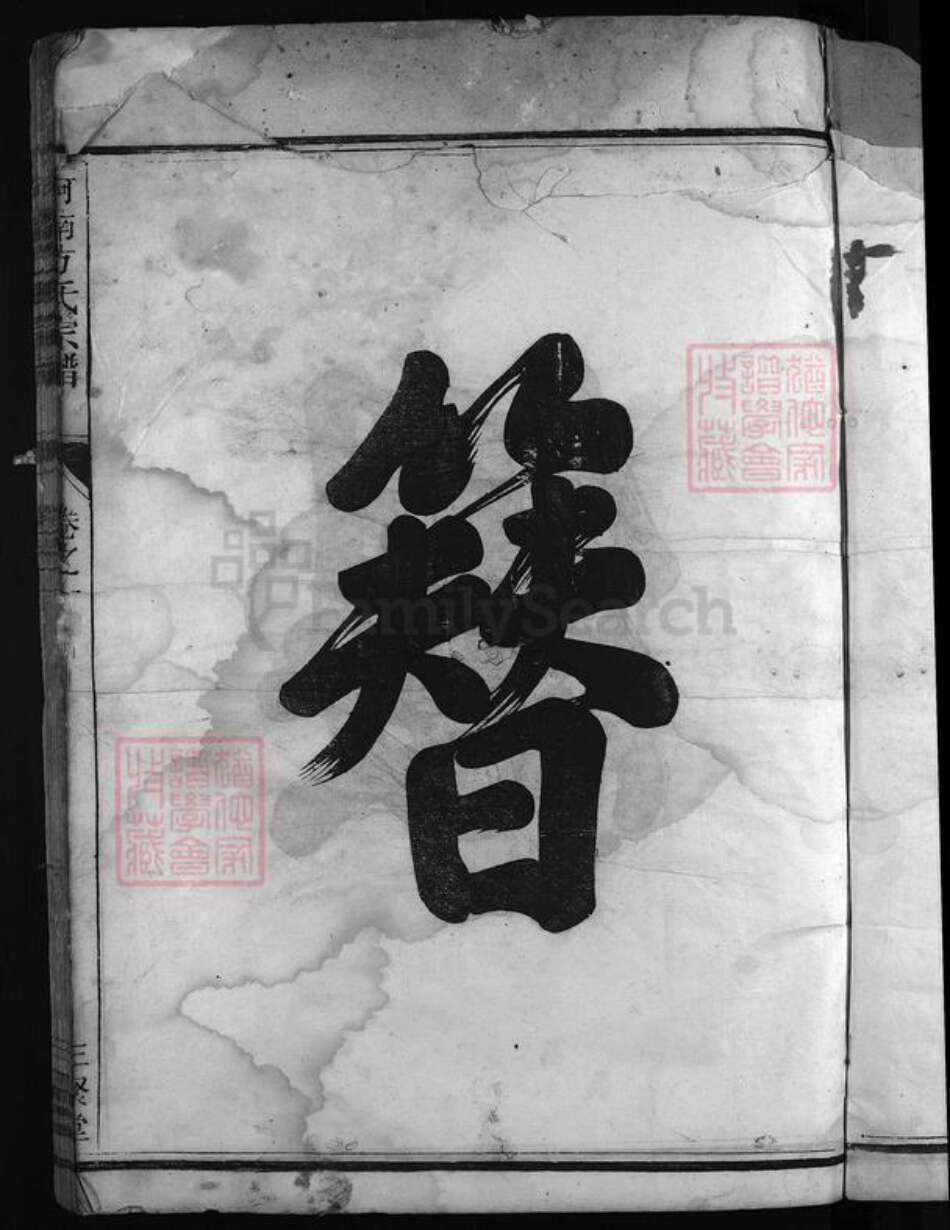 簪
河南方氏宗譜
卷之
猶他家
譜學會
收藏
猶他家
譜學會
收藏
FamilySearch